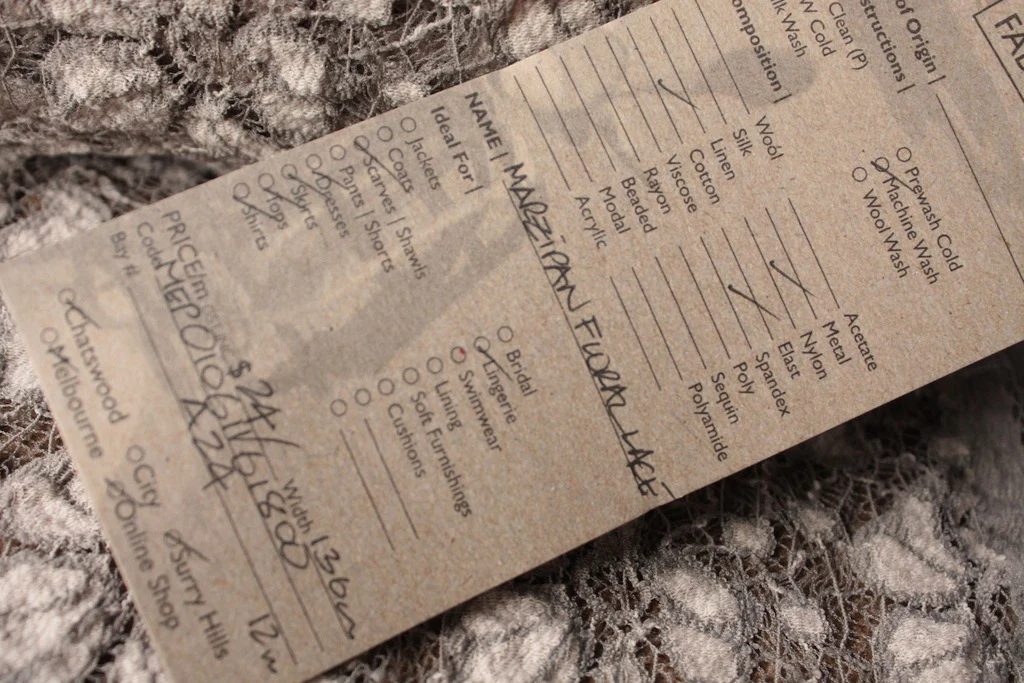 FAB
of Origin |
structions |
Clean (P)
W Cold
lk Wash
Prewash Cold
Machine Wash
Wool Wash
omposition |
Wool
Silk
Linen
Cotton
Viscose
Rayon
Beaded
Modal
Acrylic
Acetate
Metal
Nylon
Elast
Spandex
Poly
Sequin
Polyamide
NAME | MARZIPAN FLORAL LACE
Ideal For |
Jackets
Coats
Scarves | Shawls
Pants | Shorts
Dresses
Skirts
Tops
Shirts
Bridal
Lingerie
Swimwear
Lining
Soft Furnishings
Cushions
PRICE/m $24 Width 136cm
Code MEP010G1V61800
Buy # A224 12m
Chatswood City Surry Hills
Melbourne Online Shop